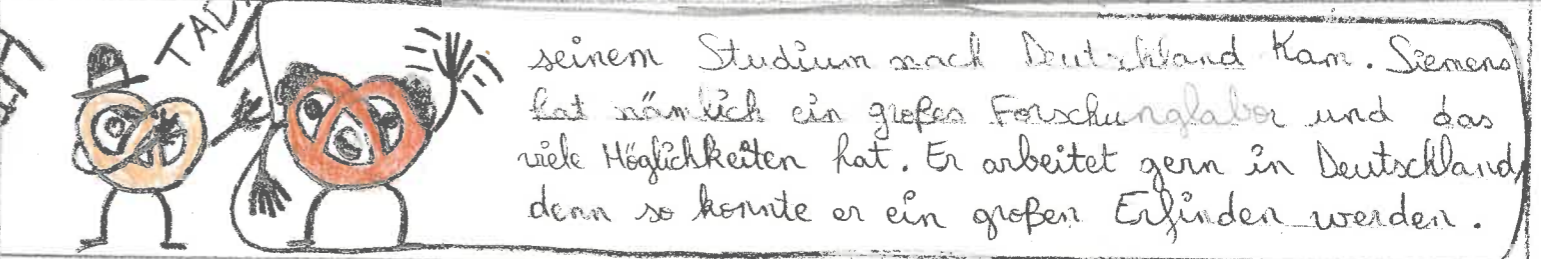 TAD
seinem Studium nach Deutschland kam. Siemens
hat nämlich ein großes Forschunglabor und das
viele Möglichkeiten hat. Er arbeitet gern in Deutschland,
denn so konnte er ein großen Erfinden werden.